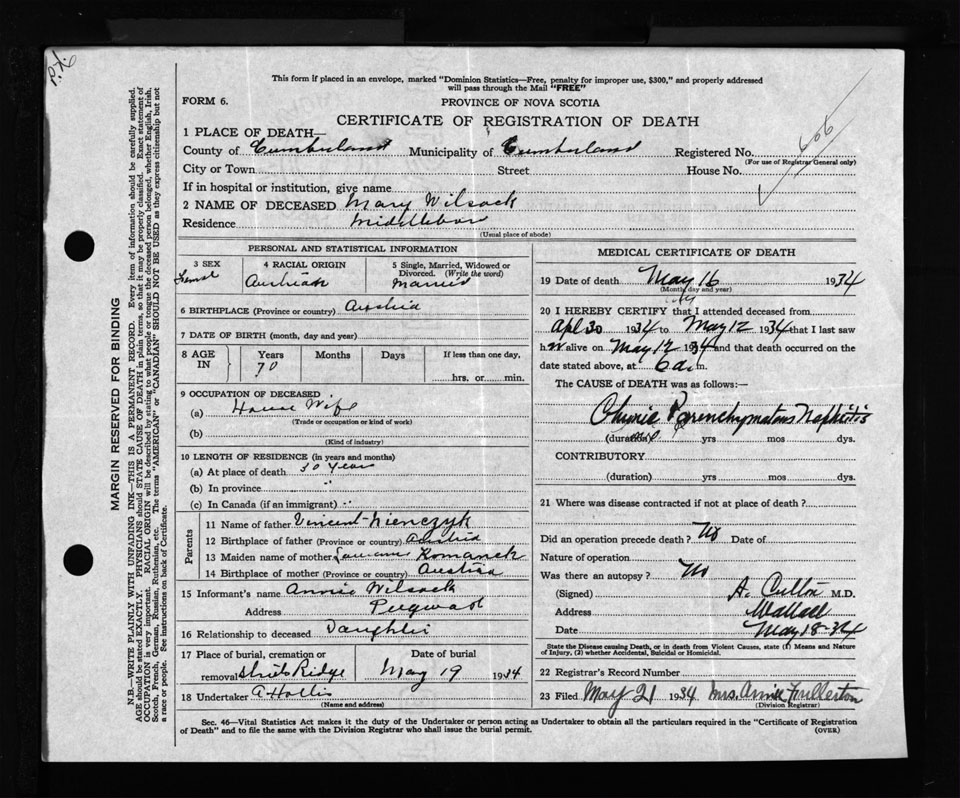 P.X.6
This form if placed in an envelope, marked "Dominion Statistics—Free, penalty for improper use, $300," and properly addressed
will pass through the Mail "FREE"
FORM 6.
PROVINCE OF NOVA SCOTIA
CERTIFICATE OF REGISTRATION OF DEATH
606
1 PLACE OF DEATH—
County of Cumberland Municipality of Cumberland Registered No.
(For use of Registrar General only)
City or Town Street House No.
If in hospital or institution, give name
2 NAME OF DECEASED Mary Wilsack
Residence Middleboro
(Usual place of abode)
MARGIN RESERVED FOR BINDING
N.B.—WRITE PLAINLY WITH UNFADING INK—THIS IS A PERMANENT RECORD. Every item of information should be carefully supplied.
AGE should be stated EXACTLY. PHYSICIANS should STATE CAUSE OF DEATH in plain terms, so that it may be properly classified. Exact statement of
OCCUPATION is very important. RACIAL ORIGIN will be described by stating to what people or tongue the deceased person belonged, whether English, Irish,
Scotch, French, German, Russian, Ruthenian, etc. The terms "AMERICAN" or "CANADIAN" SHOULD NOT BE USED as they express citizenship but not
a race or people. See instructions on back of Certificate.
PERSONAL AND STATISTICAL INFORMATION
3 SEX
4 RACIAL ORIGIN
5 Single, Married, Widowed or
Divorced. (Write the word)
Femal Austrian Married
6 BIRTHPLACE (Province or country) Austria
7 DATE OF BIRTH (month, day and year)
8 AGE
IN
Years Months Days If less than one day,
70
hrs. or min.
9 OCCUPATION OF DECEASED
(a) House Wife
(Trade or occupation or kind of work)
(b)
(Kind of industry)
10 LENGTH OF RESIDENCE (in years and months)
(a) At place of death 30 Years
(b) In province
(c) In Canada (if an immigrant)
Parents
11 Name of father Vincent Nienczyk
12 Birthplace of father (Province or country) Austria
13 Maiden name of mother Romanek
14 Birthplace of mother (Province or country) Austria
15 Informant's name Annie Wilsack
Address Pugwash
16 Relationship to deceased Daughter
17 Place of burial, cremation or Date of burial
removal Ridge May 19 1934
18 Undertaker A Hollis
(Name and address)
MEDICAL CERTIFICATE OF DEATH
19 Date of death May 16 1934
(Month, day and year)
20 I HEREBY CERTIFY that I attended deceased from
Apl 30 1934 to May 12 1934 that I last saw
her alive on May 12 1934 and that death occurred on the
date stated above, at 6 a. m.
The CAUSE OF DEATH was as follows:—
Chronic Parenchymatous Nephritis
(duration) yrs mos dys.
CONTRIBUTORY
(duration) yrs mos dys.
21 Where was disease contracted if not at place of death?
Did an operation precede death? No Date of
Nature of operation
Was there an autopsy? No
(Signed) A. M.D.
Address Wallace
Date May 18-34
State the Disease causing Death, or in death from Violent Causes, state (1) Means and Nature
of Injury, (2) whether Accidental, Suicidal or Homicidal.
22 Registrar's Record Number
23 Filed May 21 1934 Mrs. Annie Fullerton
(Division Registrar)
Sec. 46—Vital Statistics Act makes it the duty of the Undertaker or person acting as Undertaker to obtain all the particulars required in the "Certificate of Registration
of Death" and to file the same with the Division Registrar who shall issue the burial permit.
(OVER)